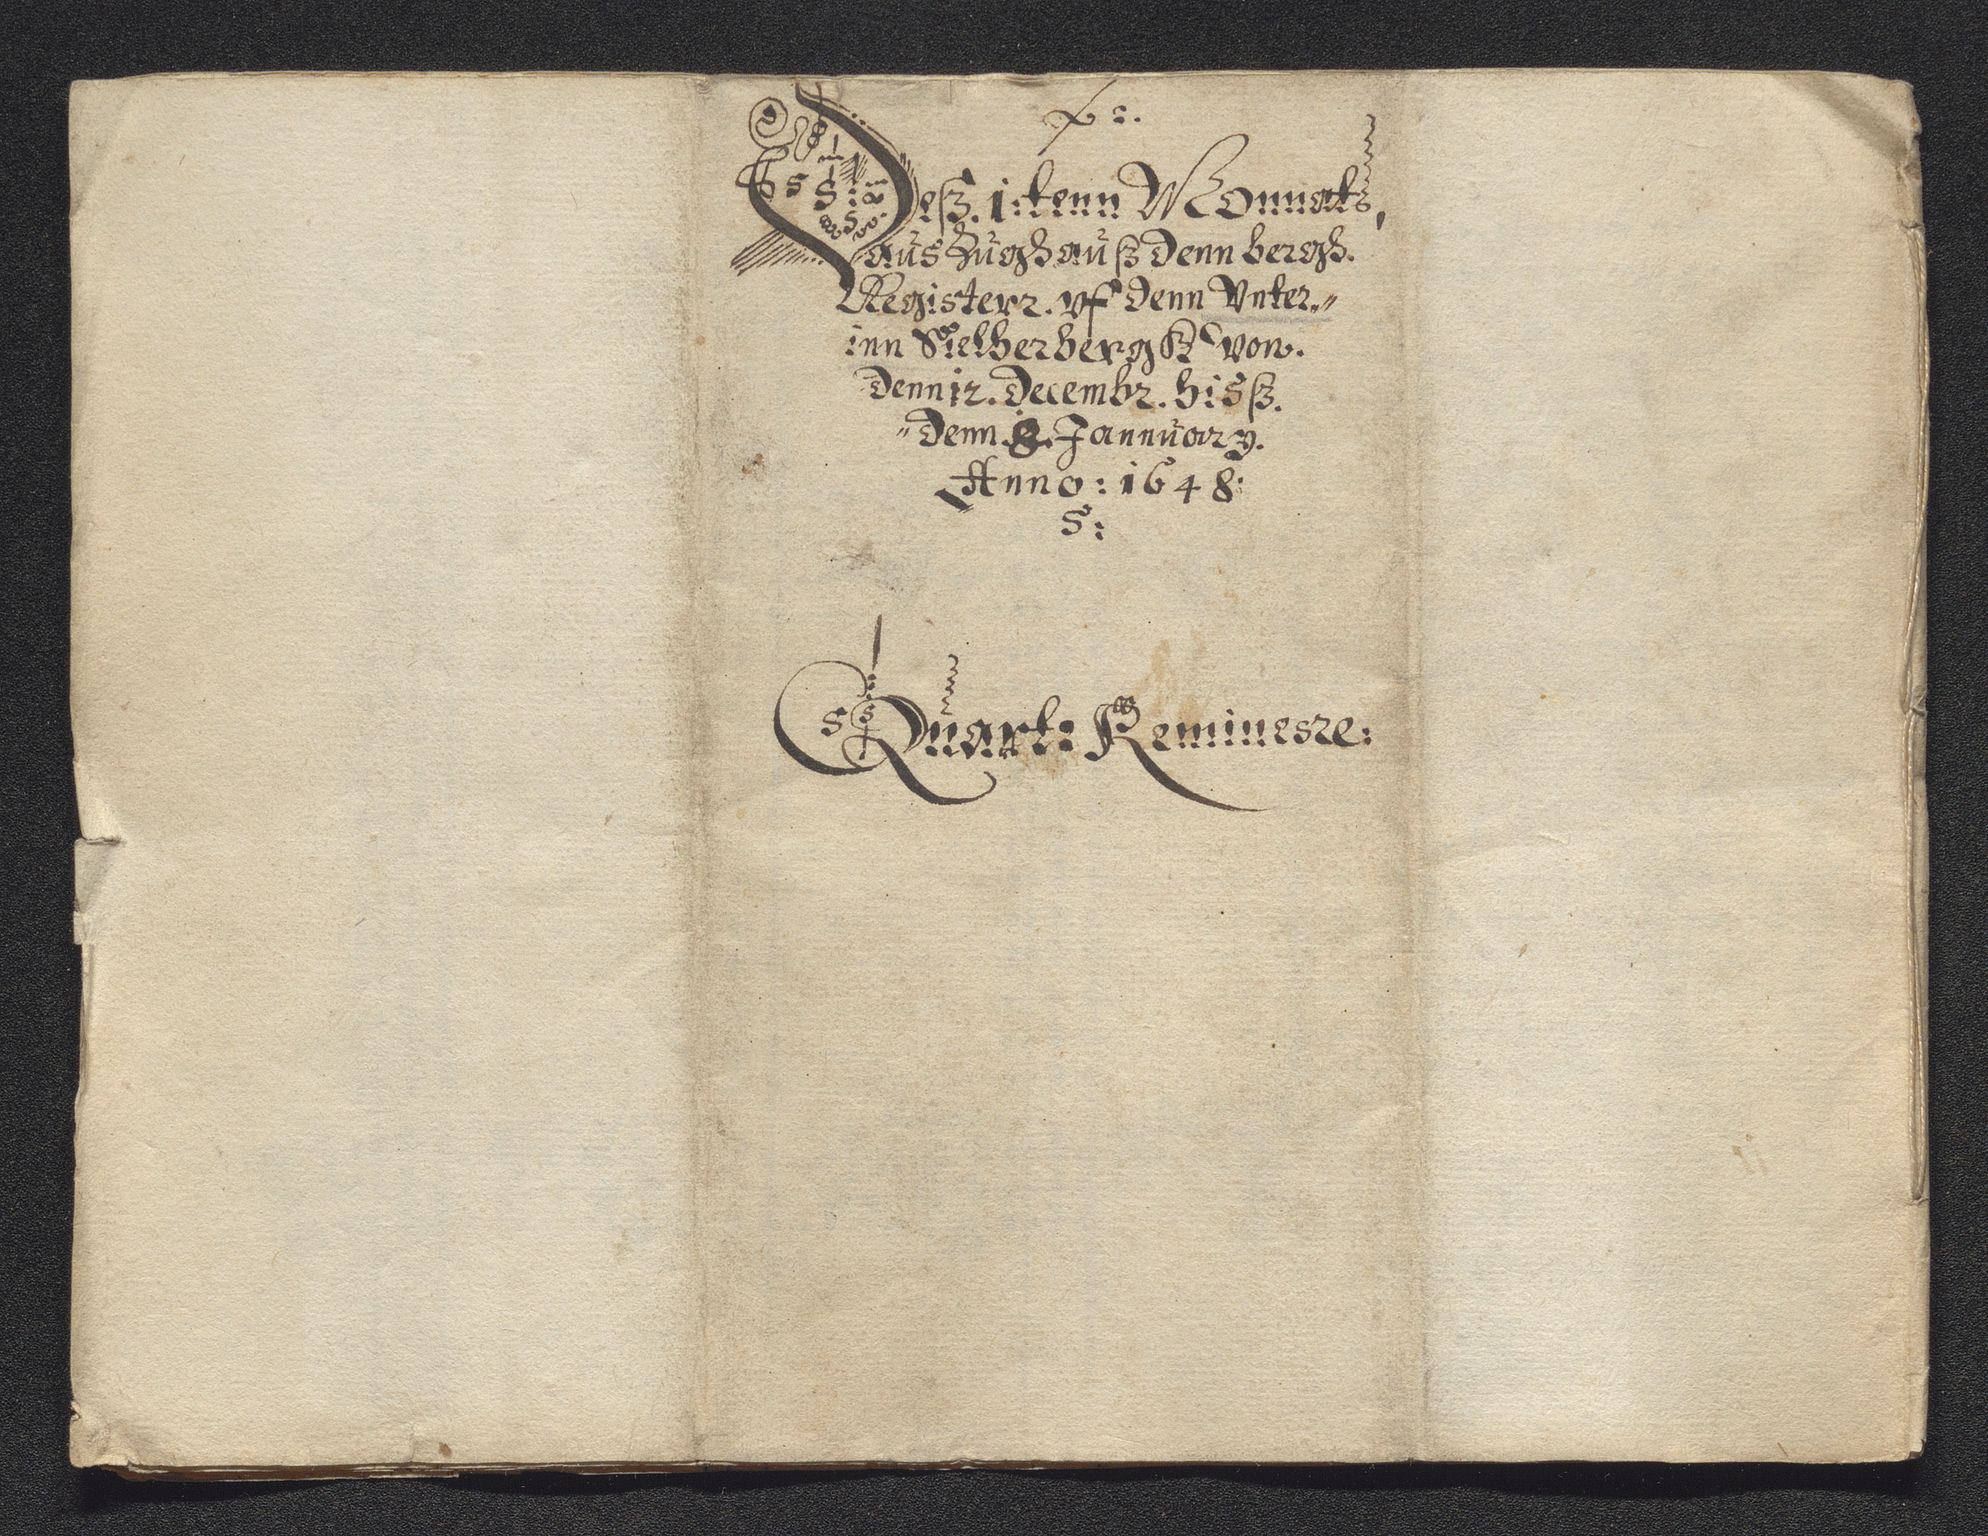 Deß. 1:tenn Monnats,
auszughauß denn bergh.
Registerr. vf denn Vnter„
inn Sielberbergk von.
denn 12. Decembr. bisß.
„denn 8. Jannuary.
Anno: 1648:
S:
Quart: Reminesre: